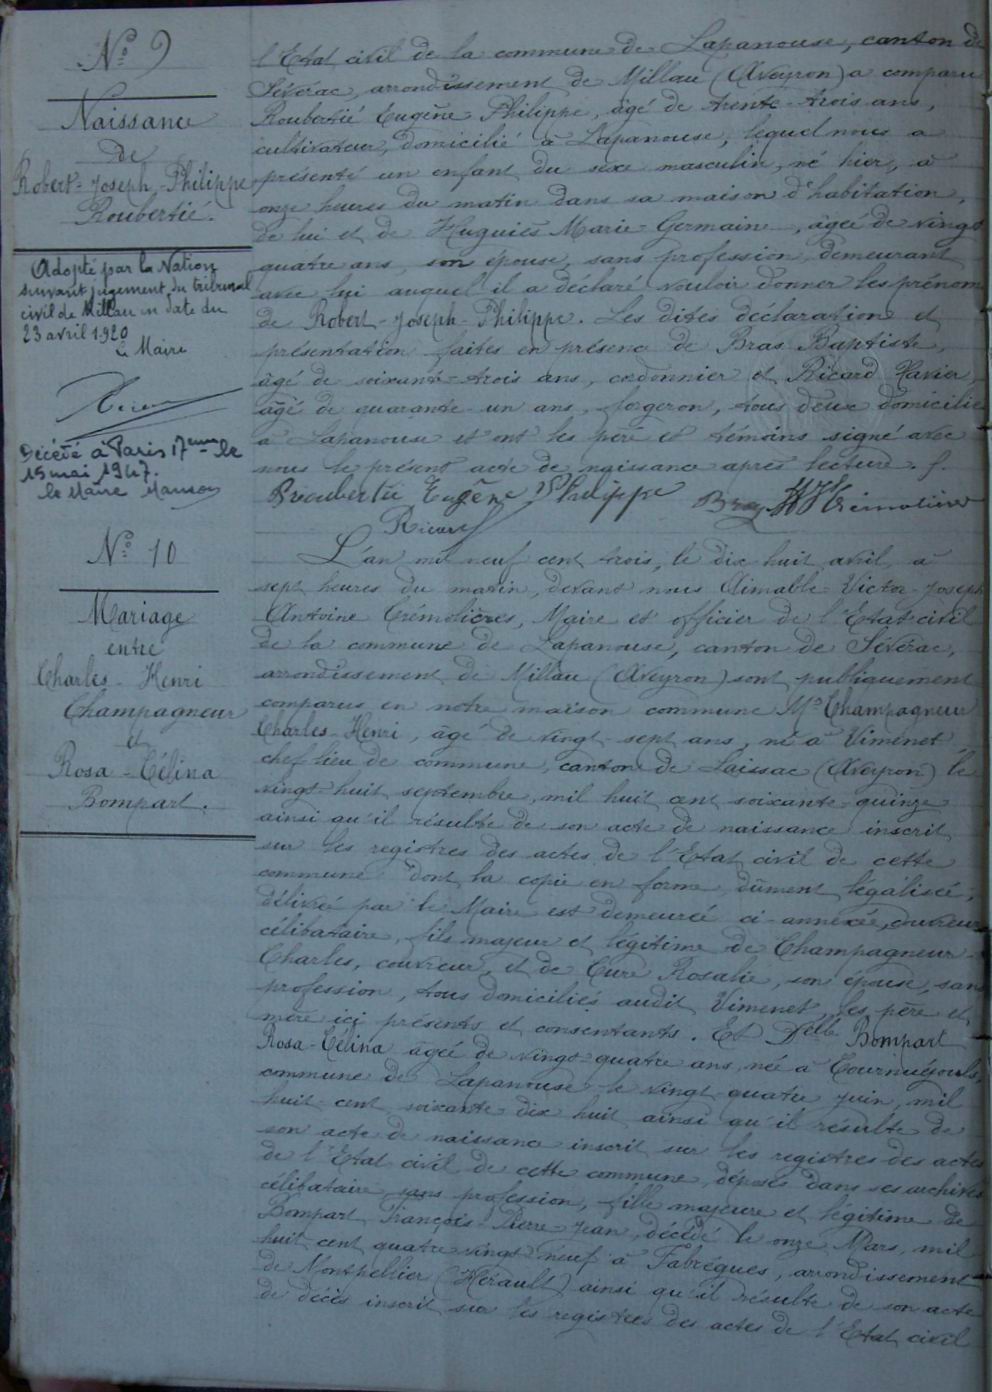 N° 9
Naissance
de
Robert-Joseph-Philippe
Roubertié.
Adopté par la Nation
suivant jugement du tribunal
civil de Millau en date du
23 avril 1920
Le Maire
Décédé à Paris 17eme le
15 mai 1947.
le Maire
l'Etat civil de la commune de Lapanouse, canton de
Sévérac, arrondissement de Millau (Aveyron) a comparu
Roubertié Eugène Philippe, âgé de trente-trois ans,
cultivateur, domicilié à Lapanouse, lequel nous a
présenté un enfant du sexe masculin, né hier, à
onze heures du matin dans sa maison d'habitation,
de lui et de Huguiès Marie Germain, âgée de vingt
quatre ans, son épouse, sans profession, demeurant
avec lui auquel il a déclaré vouloir donner les prénoms
de Robert-Joseph-Philippe. Les dites déclaration et
présentation faites en présence de Bras Baptiste,
âgé de soixante-trois ans, cordonnier et Ricard Xavier,
âgé de quarante-un ans, forgeron, tous deux domiciliés
à Lapanouse et ont les père et témoins signé avec
nous le présent acte de naissance après lecture. f.
Roubertié Eugène Philippe Bras Trémolières
Ricard
N° 10
Mariage
entre
Charles-Henri
Champagneur
et
Rosa-Célina
Bompart.
L'an mil neuf cent trois, le dix huit avril, à
sept heures du matin, devant nous Aimable-Victor-Joseph
Antoine Trémolières, Maire et officier de l'Etat civil
de la commune de Lapanouse, canton de Sévérac,
arrondissement de Millau (Aveyron) sont publiquement
comparus en notre maison commune Mr Champagneur
Charles-Henri, âgé de vingt-sept ans, né à Vimenet
chef lieu de commune, canton de Laissac (Aveyron) le
vingt-huit septembre, mil huit cent soixante-quinze
ainsi qu'il résulte de son acte de naissance inscrit
sur les registres des actes de l'Etat civil de cette
commune dont la copie en forme, dûment légalisée,
délivrée par le Maire est demeurée ci-annexée, couvreur
célibataire, fils majeur et légitime de Champagneur
Charles, couvreur, et de Cure Rosalie, son épouse, sans
profession, tous domiciliés audit Vimenet, les père et
mère ici présents et consentants. Et Delle Bompart
Rosa-Célina âgée de vingt-quatre ans, née à Tournuéjouls,
commune de Lapanouse le vingt-quatre juin, mil
huit-cent soixante dix huit ainsi qu'il résulte de
son acte de naissance inscrit sur les registres des actes
de l'Etat civil de cette commune, déposés dans ses archives
célibataire, sans profession, fille majeure et légitime de
Bompart François-Pierre Jean, décédé le onze Mars, mil
huit cent quatre vingt neuf à Fabrègues, arrondissement
de Montpellier (Hérault) ainsi qu'il résulte de son acte
de décès inscrit sur les registres des actes de l'Etat civil